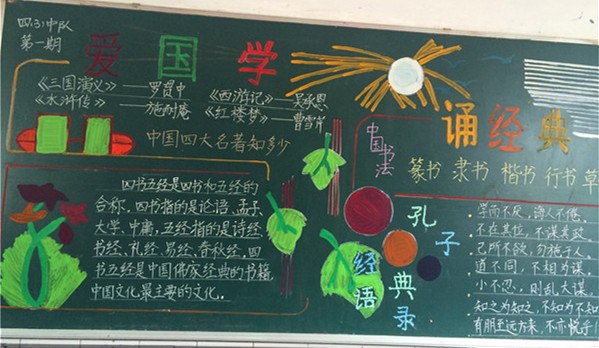 四(3)中队
第一期
爱国学
《三国演义》——罗贯中
《水浒传》——施耐庵
《西游记》——吴承恩
《红楼梦》——曹雪芹
中国四大名著知多少
四书五经是四书和五经的
合称。四书指的是论语、孟子、
大学、中庸。五经指的是诗经
书经、礼经、易经、春秋经。四
书五经是中国儒家经典的书籍
中国文化最主要的文化。
诵经典
中国书法
篆书 隶书 楷书 行书 草
孔子
经典
语录
学而不厌，诲人不倦。
不在其位，不谋其政。
己所不欲，勿施于人。
道不同，不相为谋。
小不忍，则乱大谋。
知之为知之，不知为不知
有朋至远方来，不亦悦乎